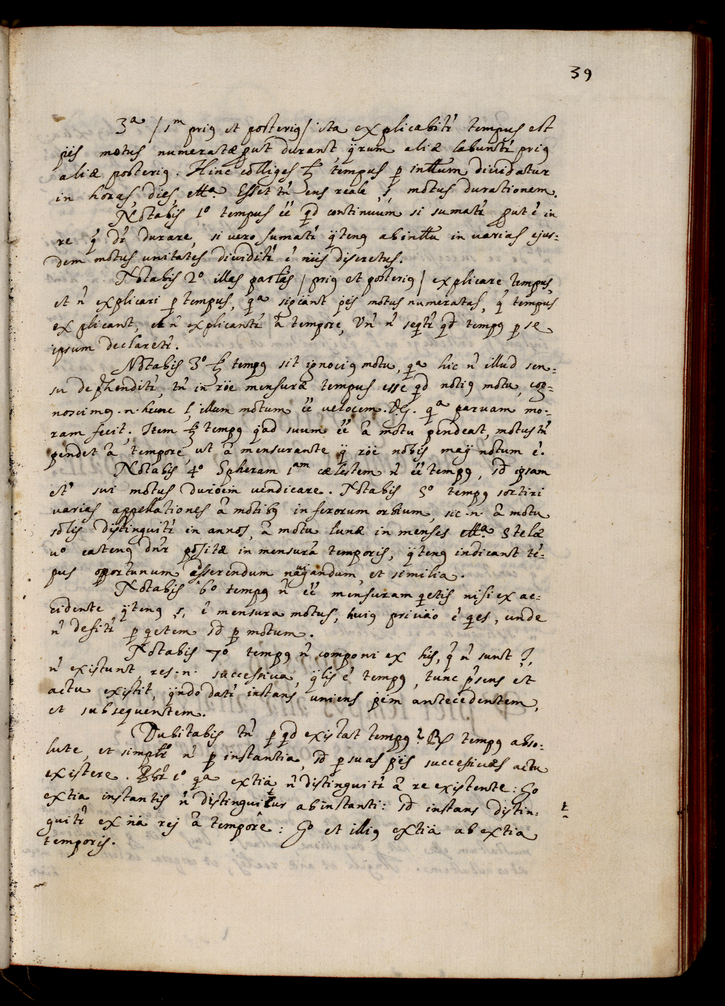 39
3ª / 1m prius et posterius / ista explicabitr tempus est
ptes motus numeratæ put durant qrum aliæ labuntr prius
aliæ posterius. Hinc colliges tempus p inttum dividatur
in horas, dies, etta. Esset tn ens reale, motus durationem.
Notabis 1º tempus ee qd continuum si sumatr put e in
re q dr durare, si vero sumatr qtenus ab inttu in varias ejus-
dem motus unitates dividitr e niis discretus.
Notabis 2º illas partlas / prius et posterius / explicare tempus,
et n explicari p tempus, qa sigcant ptes motus numeratas, q tempus
explicant, et n explicantr à tempore, Un n seqtr qd tempus p se
ipsum declaretr.
Notabis 3º tempus sit ignocius motu, qa hic n illud sen-
su dephenditr, tn in roe mensuræ tempus esse qd notius motu, cog-
noscimus .n. hunc l, illum motum ee velocem .v.g. qa parvam mo-
ram fecit. Item tempus qad suum ee à motu pendeat, motus tn
pendet à tempore, ut à mensurante q roe nobis magis notum e.
Notabis 4º Spheram 1am cælestem n ee tempus, sd ipsam
et sui motus duroem vendicare. Notabis 5º tempus sortiri
varias appellationes à motibus inferorum orbium, sic .n. à motu
solis distinguitr in annos, à motu lunæ in menses etta. Stelæ
vo eatenus dnr positæ in mensura temporis, qtenus indicant te-
pus oportunum asserendum navigandum, et similia.
Notabis 6º tempus n ee mensuram qetis nisi ex ac-
cidente qtenus s, e mensura motus, huius privao e qes, unde
n defitr p qetem sd p motum.
Notabis 7º tempus n componi ex his, q n sunt?,
n existunt res .n. succesiva, qlis e tempus, tunc psens et
actu existit, qndo datr instans uniens ptem antecedentem,
et subsequentem.
Dubitabis tn p qd existat tempus? R tempus abso-
lute, et simplr n p instantia, sd p suas ptes succesivas actu
existere. Pbr 1º qa extia n distinguitr à re existente: Go
extia instantis n distinguitur ab instanti: sd instans distin-
guitr ex na rei à tempore: Go et illius extia ab extia
temporis.